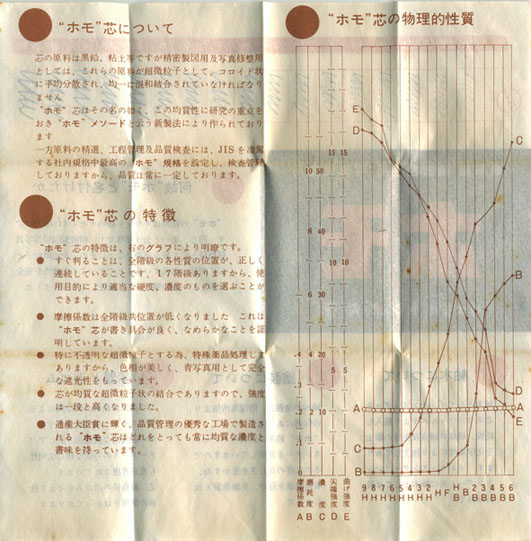 “ホモ”芯について
芯の原料は黒鉛、粘土等ですが精密製図用及写真修整用
としては、これらの原料が超微粒子として、コロイド状
に平均分散され、均一に混和結合されていなければなり
ません
“ホモ”芯はその名の如く、この均質性に研究の重点を
おき“ホモ”メソードと云う新製法により作られており
ます
一方原料の精選、工程管理及品質検査には、JISを凌駕
する社内規格中最高の“ホモ”規格を設定し、検査管理
しておりますから、品質は常に一定しております。
“ホモ”芯の特徴
“ホモ”芯の特徴は、右のグラフにより明瞭です。
すぐ判ることは、全階級の各性質の位置が、正しく
連続していることです、17階級ありますから、使
用目的により適当な硬度、濃度のものを選ぶことが
できます。
摩擦係数は全階級共位置が低くなりました これは
“ホモ”芯が書き具合が良く、なめらかなことを証
明しています。
特に不透明な超微粒子とする為、特殊薬品処理して
ありますから、色相が美しく、青写真用として完全
な遮光性をもっています。
芯が均質な超微粒子状の結合でありますので、強度
は一段と高くなりました。
通産大臣賞に輝く、品質管理の優秀な工場で製造さ
れる“ホモ”芯はどれをとっても常に均質な濃度と
書味を持っています。
“ホモ”芯の物理的性質
E
D
C
B
A
A
D
E
C
B
15 15
10 50
10 10
8 40
6 30
.4 4 20 5 5
.3
.2 2 10
.1
0 0 0 0 0
9H 8H 7H 6H 5H 4H 3H 2H H F HB B 2B 3B 4B 5B 6B
摩擦係数 A
磨耗度 B
濃度 C
尖端強度 D
曲げ強度 E